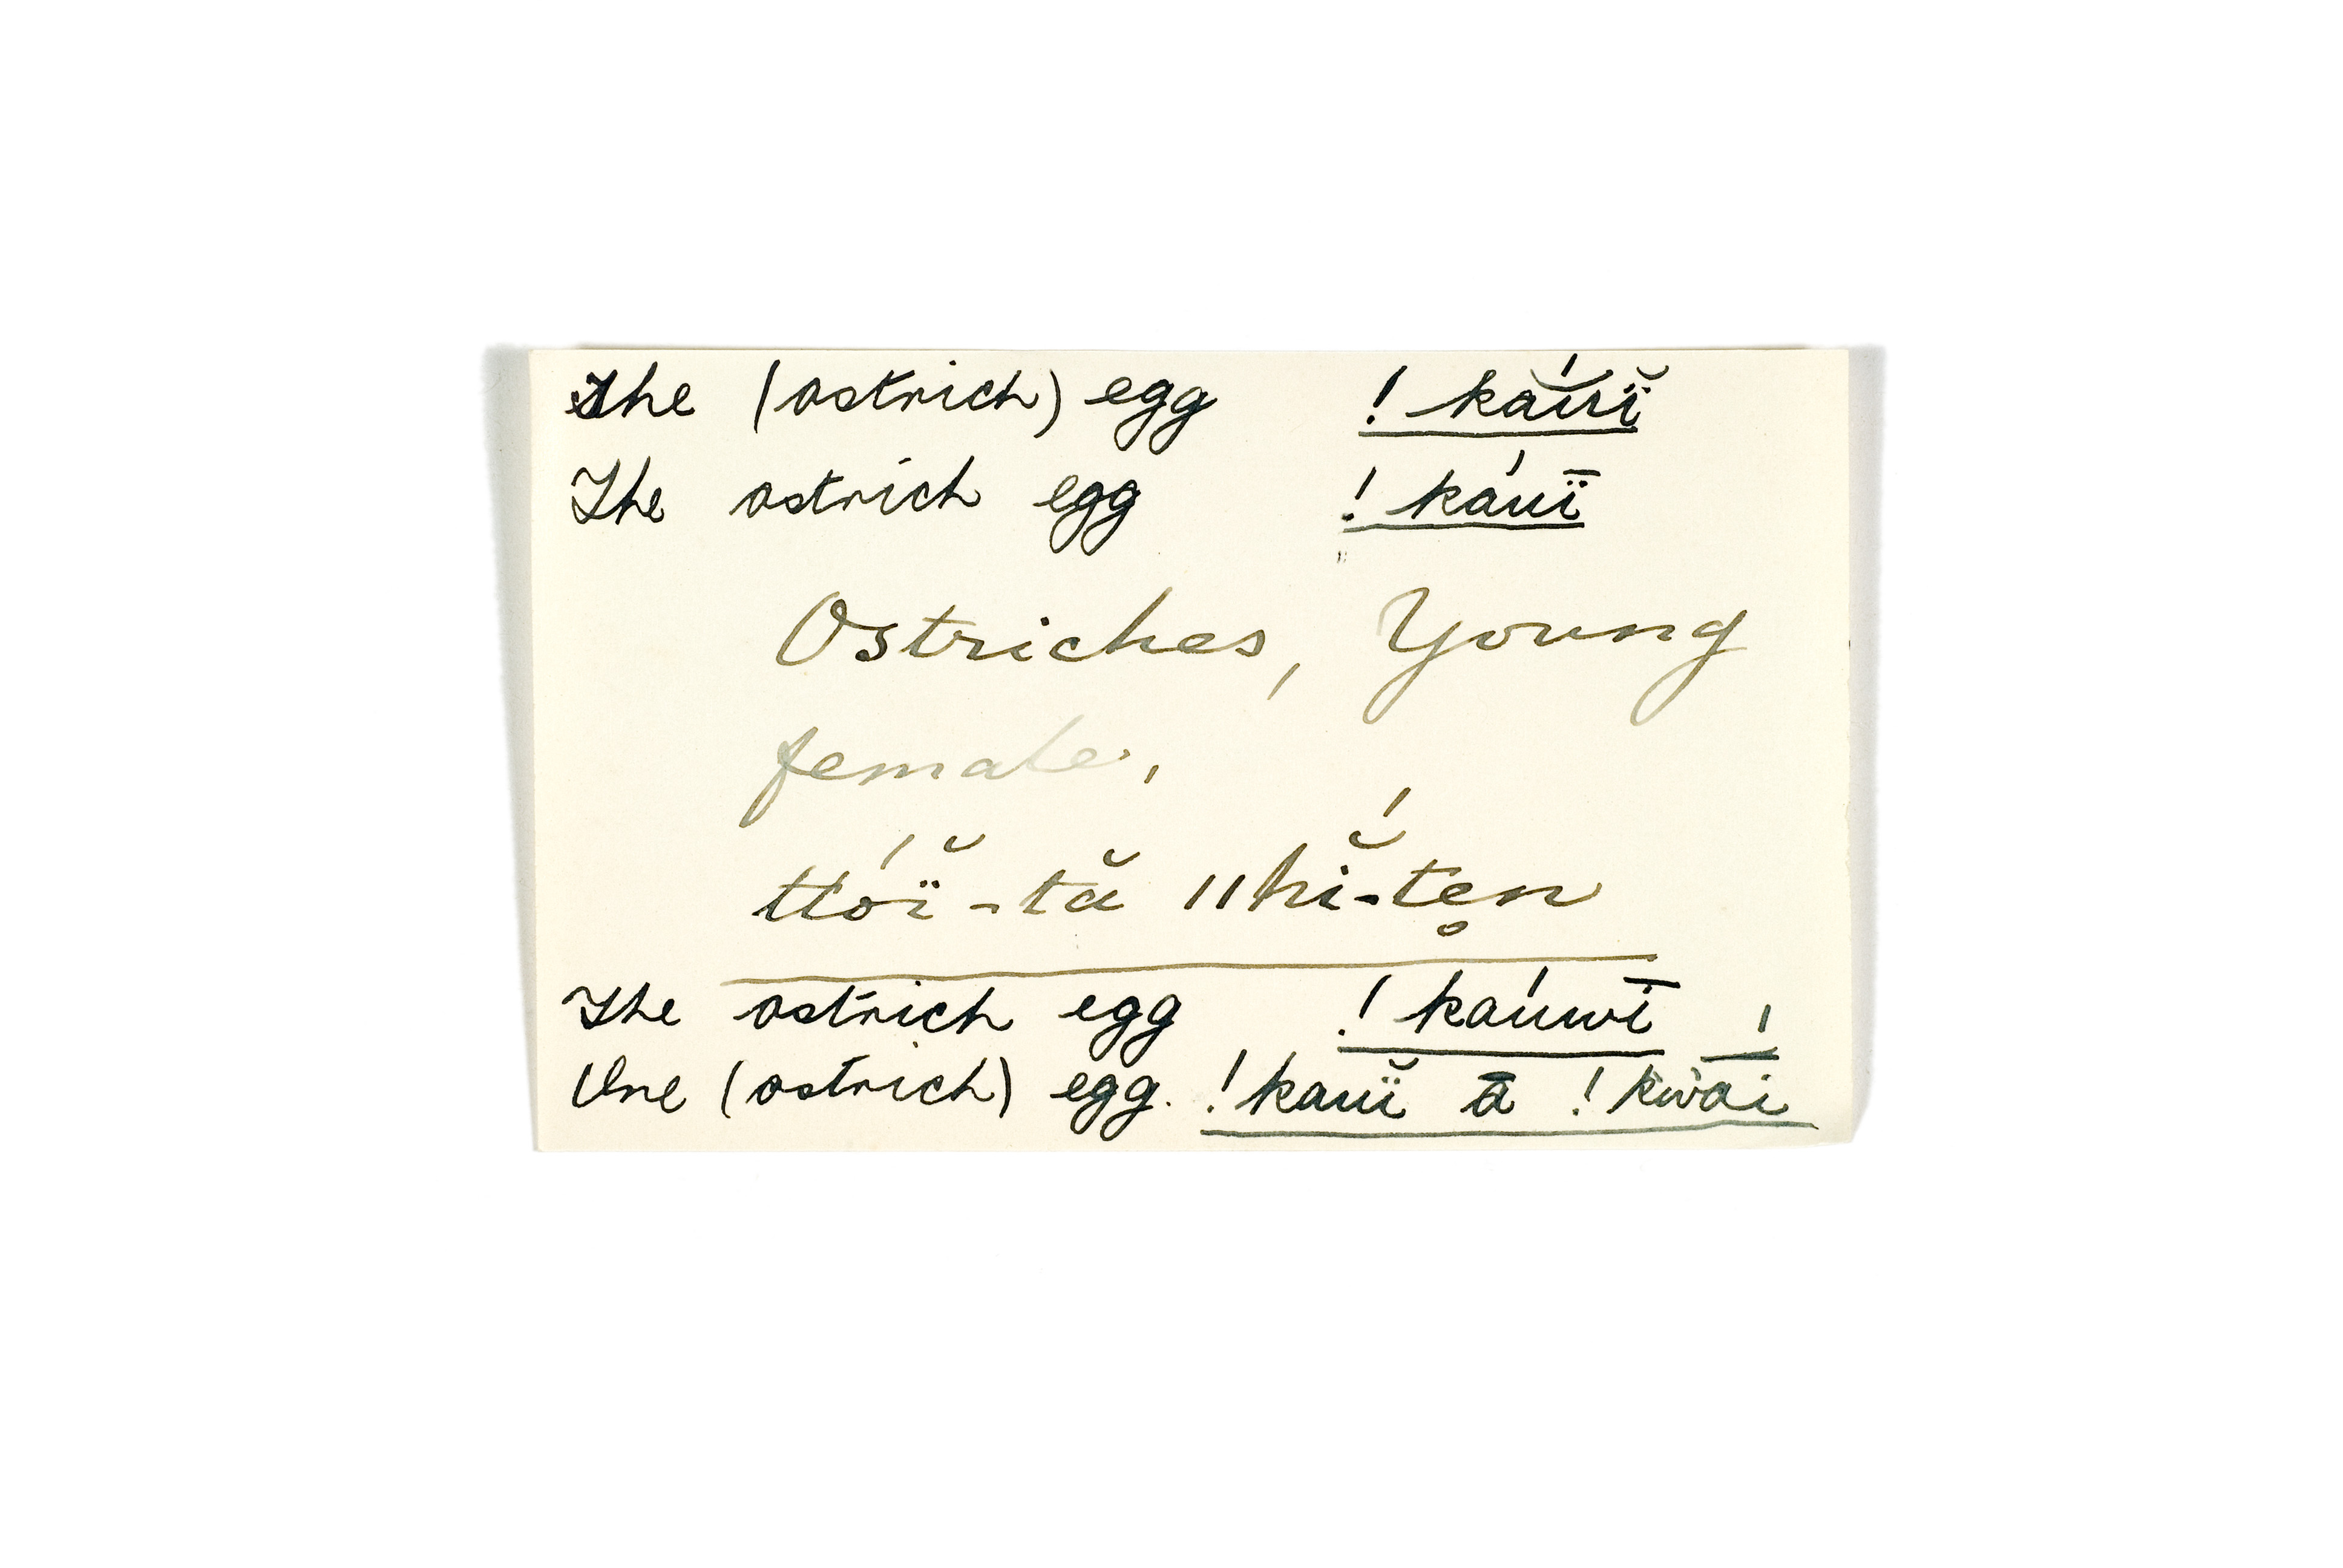 The (ostrich) egg ! káŭï̆
The ostrich egg ! káuï̄
Ostriches, Young
female,
ttóï̆-tă ǁhĭ́-tẹn
The ostrich egg ! kaúwī
One (ostrich) egg. !kauï̆ ā ! kwā́i